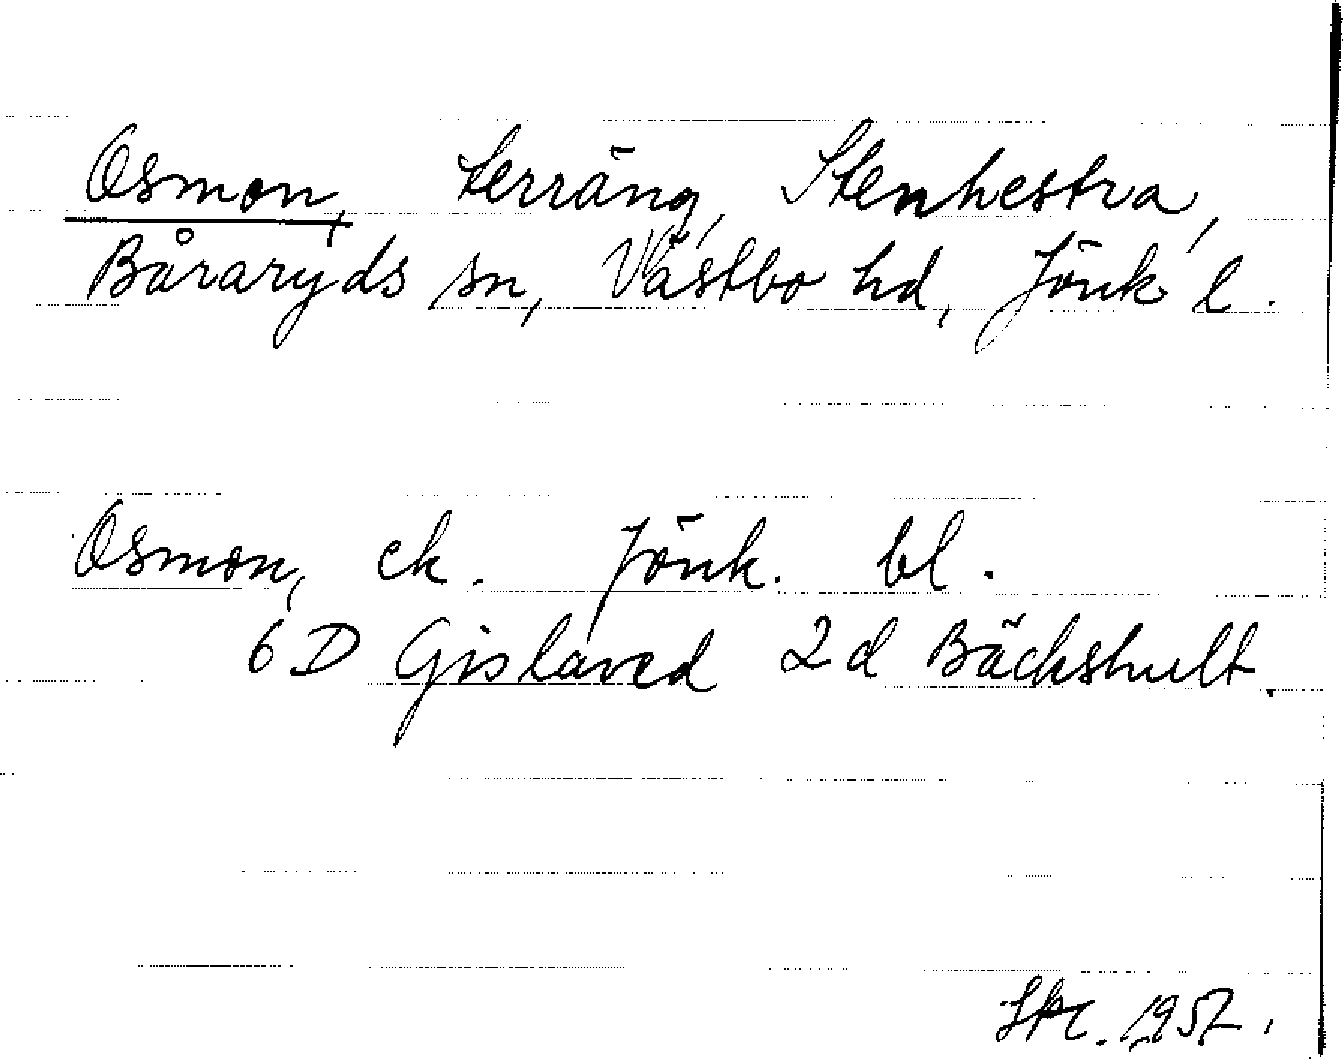 Osmon, terräng, Stenhestra,
Båraryds sn, Västbo hd, Jönk l.
Osmon, ek. Jönk. bl.
6 D Gislaved 2 d Bäckshult.
1952.